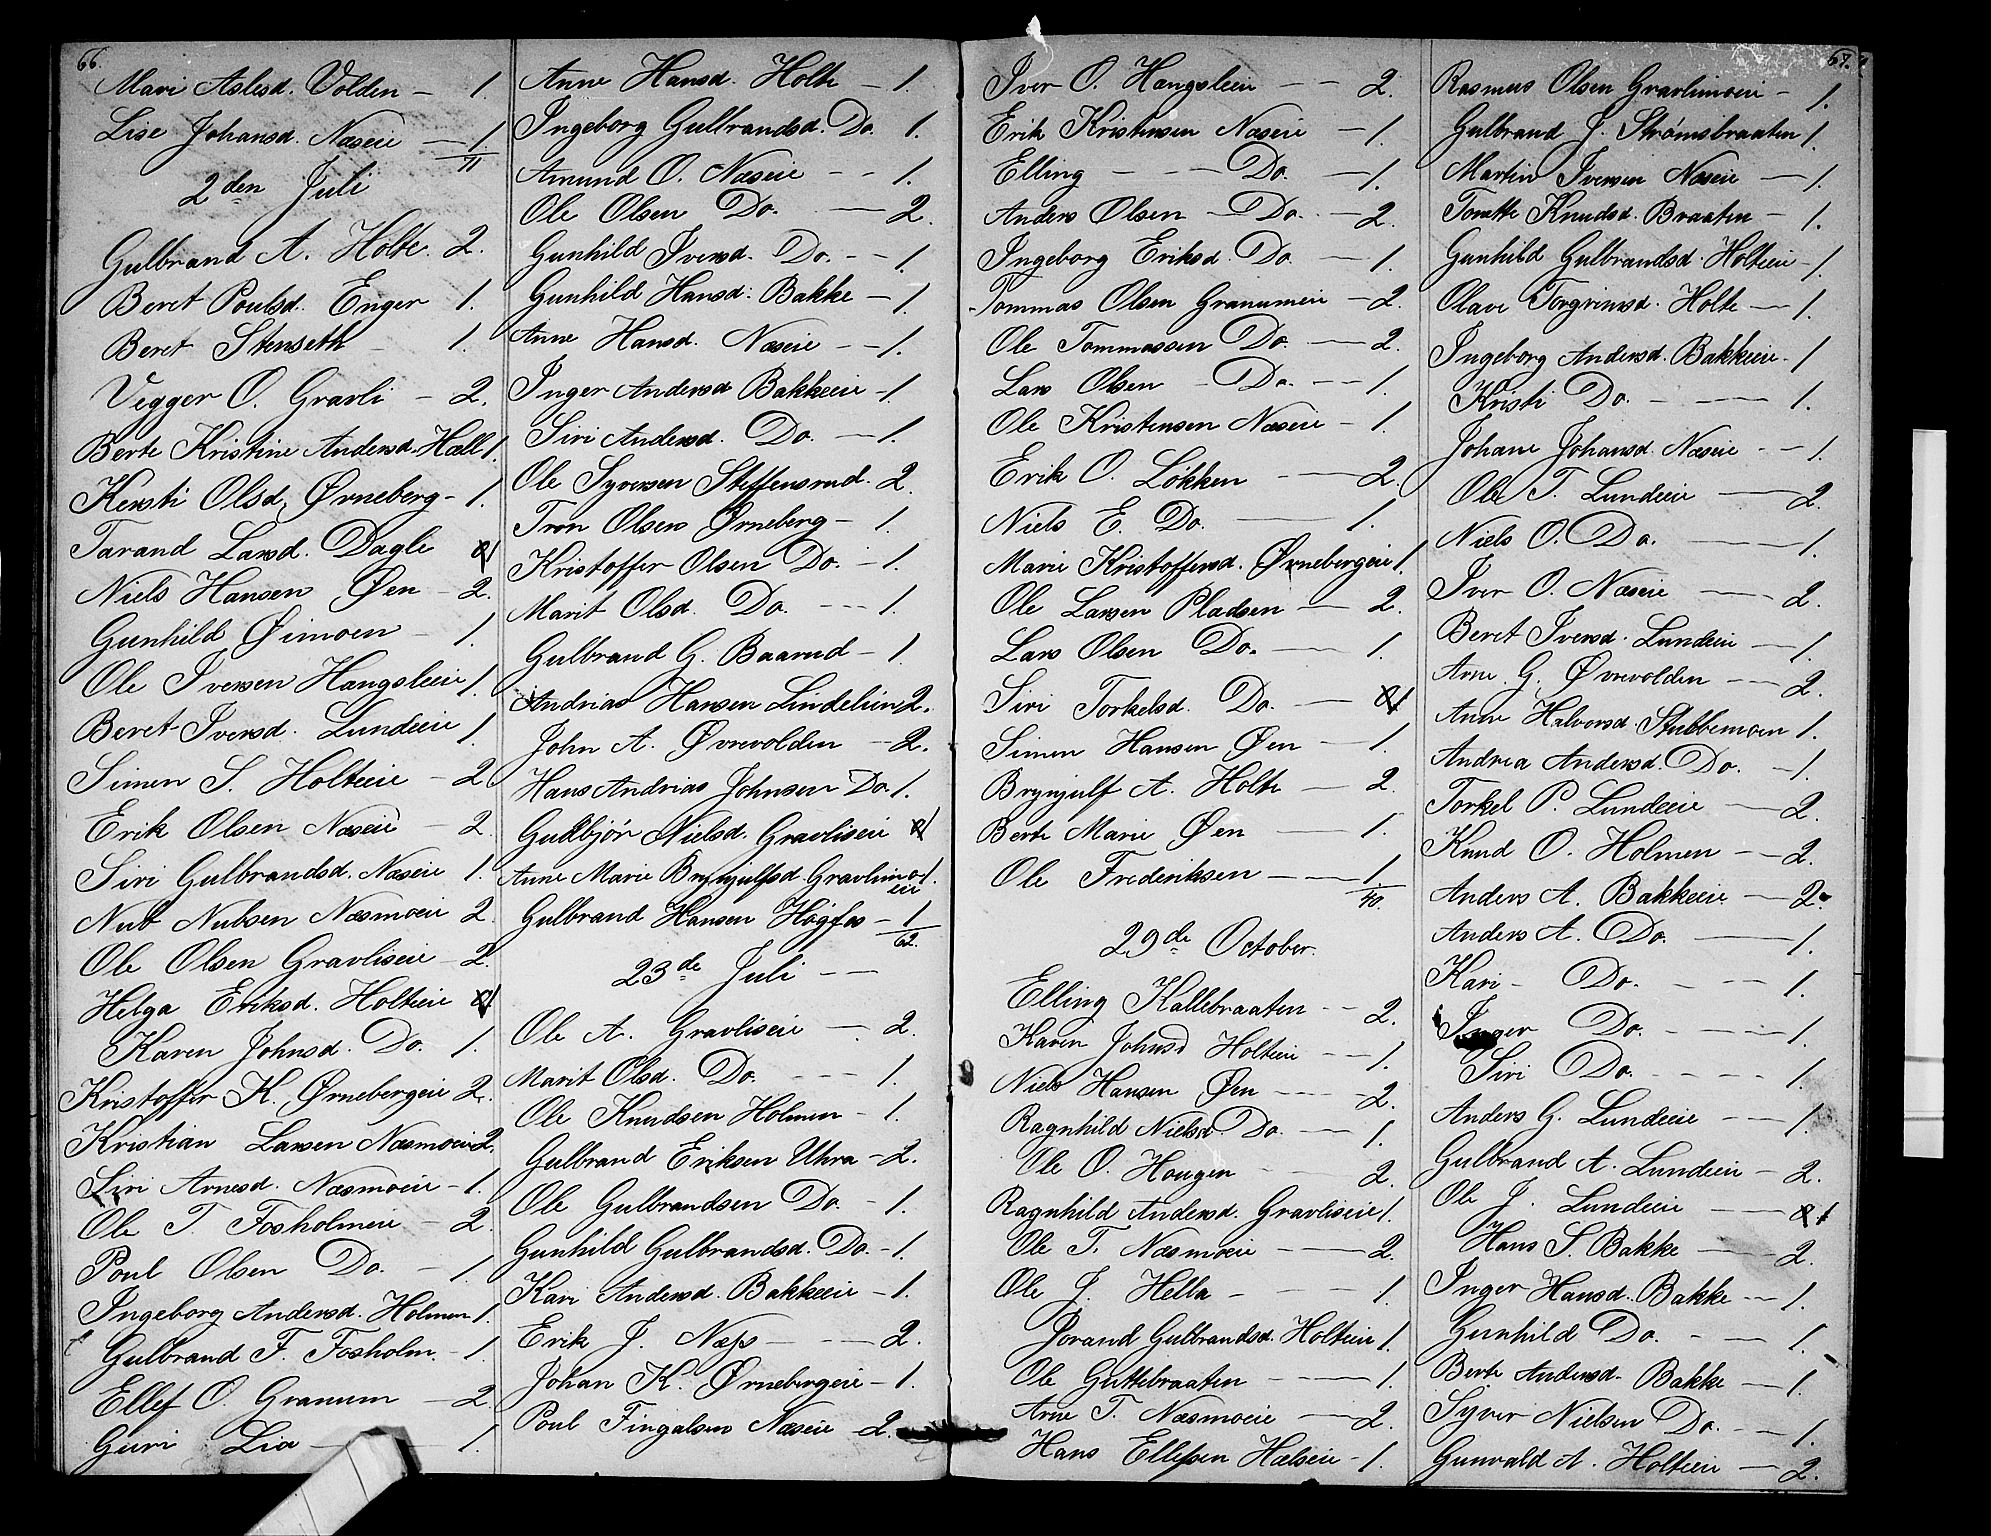 66.
Mari Aslesd. Volden – 1.
Lise Johansd. Næseie – 1.
11
2den Juli
Gulbrand A. Holte. 2.
Beret Poulsd. Enger 1.
Beret Stenseth – 1.
Vegger O. Gravli – 2.
Berte Kristine Andersd. Hæll 1.
Kersti Olsd. Ørneberg – 1.
Tarand Larsd. Dagli 1
Niels Hansen Øen – 2.
Gunhild Øimoen – 1.
Ole Iversen Hangsleeie 1.
Beret Iversd. Lundeeie 1.
Simen S. Holteeie – 2
Erik Olsen Næseie – 2.
Siri Gulbrandsd. Næseie 1.
Nub Nubsen Næsmoeie 2.
Ole Olsen Gravliseie – 2.
Helga Eriksd. Holteeie 1
Karen Johnsd. Do. 1.
Kristoffer K. Ørnebergeie 2.
Kristian Larsen Næsmoeie 2.
Siri Arnesd. Næsmoeie – 1.
Ole T. Fosholmeie – 2.
Poul Olsen Do. – 1.
Ingeborg Andersd. Holmen 1.
Gulbrand F. Fosholm. – 1.
Ellef O. Granum – 2.
Guri Lia – 1.
Anne Hansd. Holte – 1.
Ingeborg Gulbrandsd. Do. 1.
Amund O. Næseie – – 1.
Ole Olsen Do. – 2.
Gunhild Iversd. Do. – – 1.
Gunhild Hansd. Bakke – 1.
Anne Hansd. Næseie – – 1.
Inger Andersd Bakkeeie – 1.
Siri Andersd. Do. – 1.
Ole Syversen Steffensrud. 2.
Tron Olsen Ørneberg – 1.
Kristoffer Olsen Do. – 1.
Marit Olsd. Do. – – – 1.
Gulbrand G. Baarud – 1.
Andrias Hansen Lindelien 2.
John A. Øvrevolden – 2.
Hans Andrias Johnsen Do. 1.
Gulbjør Nielsd. Gravliseie 1
Anne Marie Brynjulfsd. Gravlimoeie 1.
Gulbrand Hansen Høgfos – 1
62.
23de Juli – –
Ole A. Gravliseie – 2.
Marit Olsd. Do. – – – 1.
Ole Knudsen Holmen – 1.
Gulbrand Eriksen Uhra – 2.
Ole Gulbrandsen Do. – 1.
Gunhild Gulbrandsd. Do. – 1.
Kari Andersd. Bakkeeie – 1.
Erik J. Næss – – – 2.
Johan K. Ørnebergeie – 1.
Poul Fingalsen Næseie 2.
67.
Iver O. Hangsleeie – – 2.
Erik Kristensen Næseie – 1.
Elling – – – Do. – 1.
Anders Olsen – Do. – 2.
Ingeborg Eriksd. Do. – 1.
Tommas Olsen Granumeie – 2.
Ole Tommassen Do. – 2.
Lars Olsen – Do. – – – 1.
Ole Kristensen Næseie – 1.
Erik O. Løkken – – 2.
Niels E. Do. – 1.
Marie Kristoffersd. Ørnebergeie 1.
Ole Larsen Pladsen – 2.
Lars Olsen Do. – – 1.
Siri Torkelsd. Do. – 1
Simen Hansen Øen – 1.
Brynjulf A. Holte – 2.
Berte Marie Øen – 1.
Ole Frederiksen – – 1
40.
29de October.
Elling Kallebraaten – – 2.
Karen Johnsd Holteeie – – 1.
Niels Hansen Øen – – – – 2.
Ragnhild Nielsd. Do. – 1.
Ole O. Hougen – – 2.
Ragnhild Andersd. Gravliseie 1.
Ole T. Næsmoeie – – – 2.
Ole J. Hella – – – – 1.
Jorand Gulbrandsd. Holteeie 1.
Ole Guttebraaten – – – 1.
Arne T. Næsmoeie – – 2.
Hans Ellefsen Hælseie – 1.
Rasmus Olsen Gravlimoeie – 1.
Gulbrand J. Strømsbraaten 1.
Martin Iversen Næseie – 1.
Torette Knudsd. Braaten – 1.
Gunhild Gulbrandsd. Holteeie – 1.
Olave Torgrimsd. Holte – 1.
Ingeborg Andersd. Bakkeeie – 1
Kristi Do. – – – 1.
Johane Johansd. Næseie – – 1.
Ole T. Lundeeie – 2.
Niels O. Do. – 1.
Iver O. Næseie – 2.
Beret Iversd. Lundeeie – 1.
Arne G. Øvrevolden – – 2.
Anne Halvorsd. Stubbemoen 1.
Andrea Andersd. Do. – 1.
Torkel P. Lundeeie – 2.
Knud O. Holmen – – 2.
Anders A. Bakkeeie – 2.
Anders A. Do. – 1.
Kari – Do. – – – 1.
Inger Do. – – – 1.
Siri Do. – – – – 1.
Anders G. Lundeeie – – 1.
Gulbrand A. Lundeeie – 2.
Ole J. Lundeeie – 1
Hans S. Bakke – 2.
Inger Hansd. Bakke – – 1.
Gunhild Do. – – 1.
Berte Andersd. Bakke – 1.
Syver Nielsen Do. – – 1.
Gunvald A. Holteeie – 2.